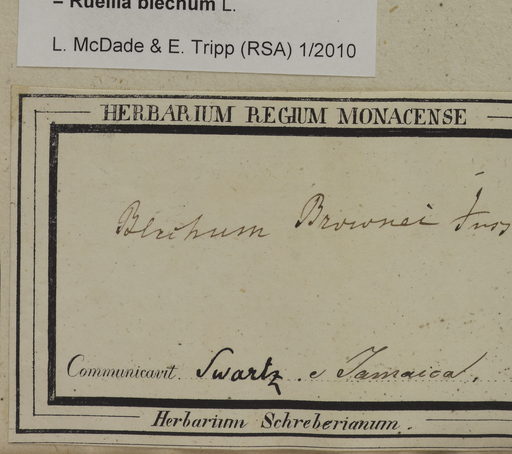 = Ruellia blechum L.
L. McDade & E. Tripp (RSA) 1/2010
HERBARIUM REGIUM MONACENSE
Blechum Brownei
Communicavit. Swartz. e Jamaica.
Herbarium Schreberianum.